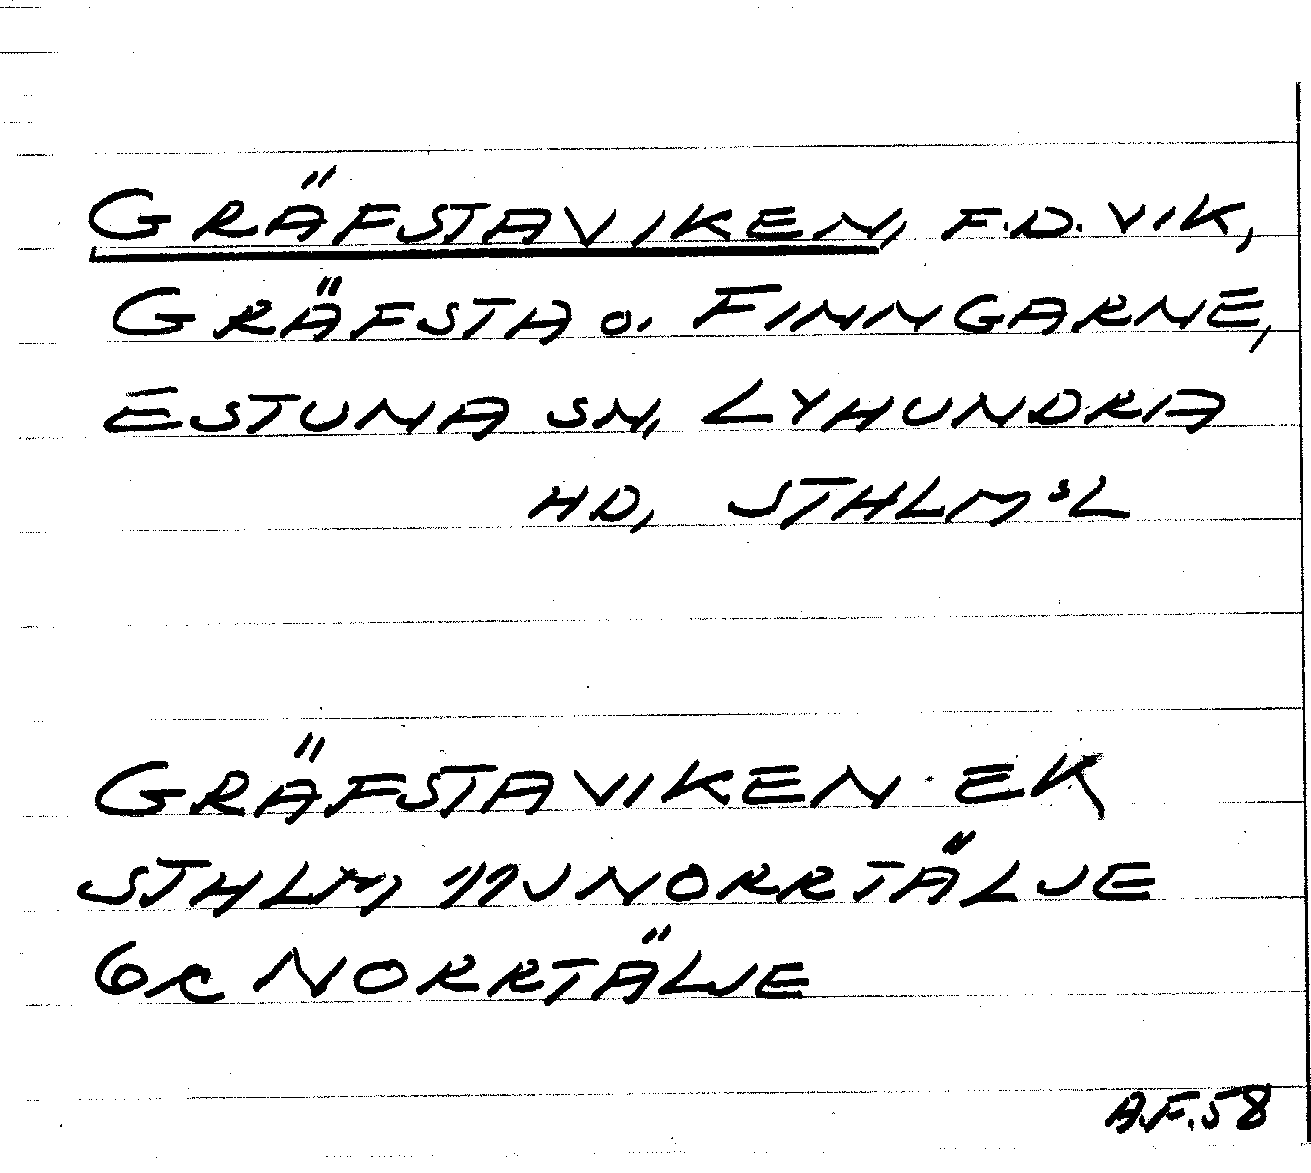 GRÄFSTAVIKEN, F.D. VIK,
GRÄFSTA o. FINNGARNE,
ESTUNA SN, LYHUNDRA
HD, STHLMSL
GRÄFSTAVIKEN. EK
STHLM 11J NORRTÄLJE
6c NORRTÄLJE
A.F. 58